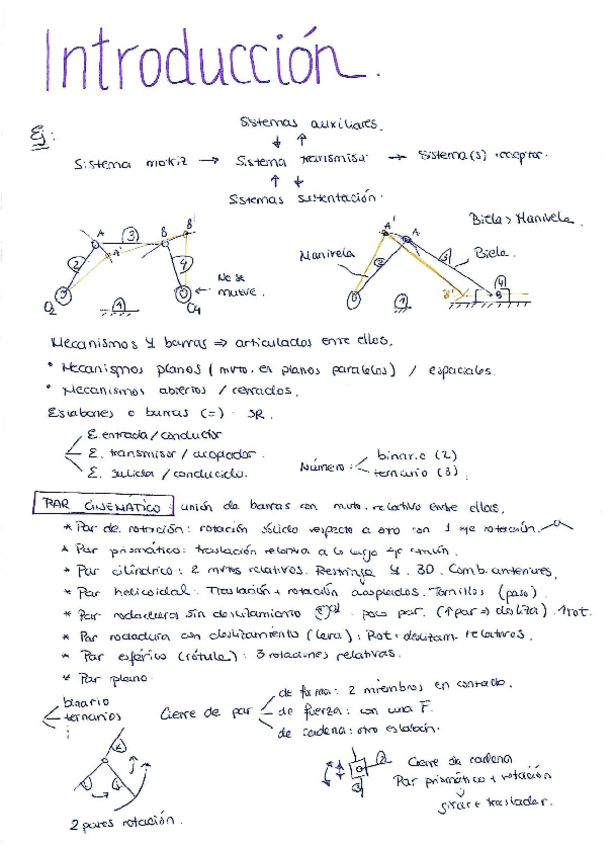 Introducción.
Ej:
Sistemas auxiliares.
Sistema motriz → Sistema transmisor → Sistema(s) receptor.
Sistemas sustentación.
A 3 B B'
2 A' 4
O2 1 O4
No se mueve.
A' A
Biela > Manivela.
Manivela
2 3 Biela.
1 B' B 4
Mecanismos y barras ⇒ articulados entre ellos.
• Mecanismos planos (mvto. en planos paralelos) / espaciales.
• Mecanismos abiertos / cerrados.
Eslabones o barras (=) SR.
E. entrada / conductor
E. transmisor / acoplador.
E. salida / conducido.
Número: binario (2)
ternario (3)
PAR CINEMÁTICO: unión de barras con mvto. relativo entre ellas.
* Par de rotación: rotación sólido respecto a otro con 1 eje rotación.
* Par prismático: traslación relativa a lo largo eje común.
* Par cilíndrico: 2 mvtos relativos. 3D. Comb. anteriores.
* Par helicoidal: Traslación + rotación acoplados. Tornillos (paso).
* Par rodadura sin deslizamiento poco par. (↑par ⇒ desliza) 1rot.
* Par rodadura con deslizamiento (leva): Rot + deslizam. relativos.
* Par esférico (rótula): 3 rotaciones relativas.
* Par plano.
binario
ternarios
⋮
Cierre de par
de forma: 2 miembros en contacto.
de fuerza: con una F.
de cadena: otro eslabón.
2 pares rotación.
Cierre de cadena
Par prismático + rotación
girar + trasladar.